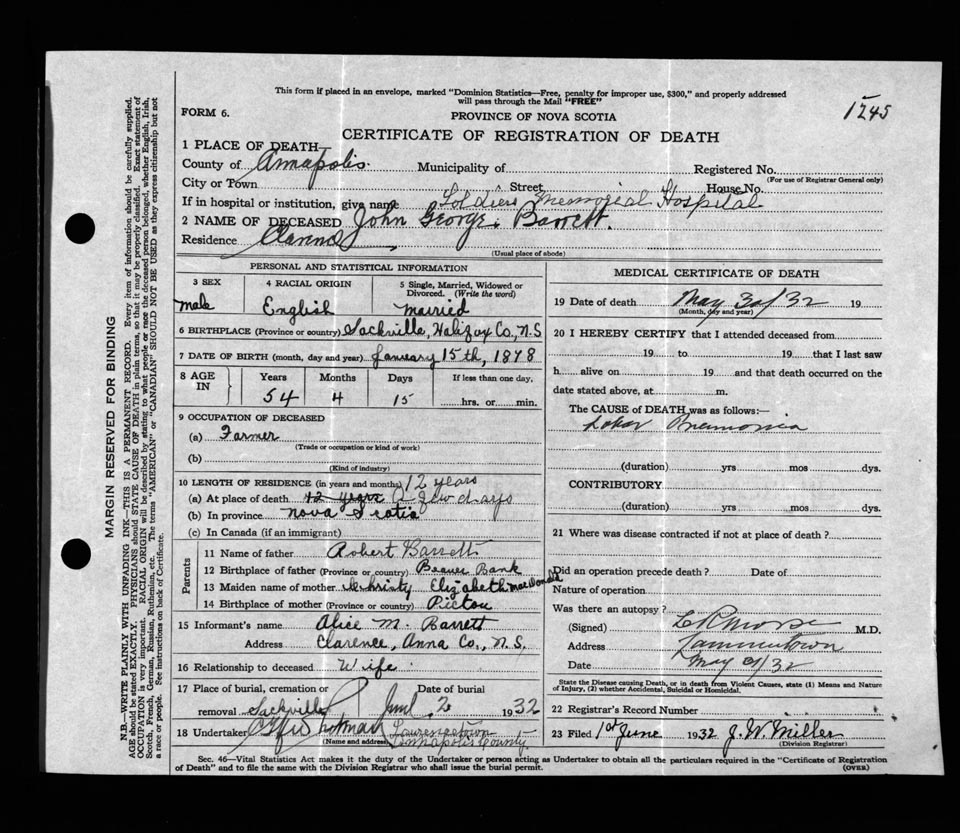 This form if placed in an envelope, marked "Dominion Statistics—Free, penalty for improper use, $300," and properly addressed
will pass through the Mail "FREE"
1245
FORM 6.
PROVINCE OF NOVA SCOTIA
CERTIFICATE OF REGISTRATION OF DEATH
1 PLACE OF DEATH—
County of Annapolis. Municipality of Registered No.
(For use of Registrar General only)
City or Town Street House No.
If in hospital or institution, give name Soldiers Memorial Hospital
2 NAME OF DECEASED John George Barrett.
Residence Clarence
(Usual place of abode)
PERSONAL AND STATISTICAL INFORMATION
3 SEX 4 RACIAL ORIGIN 5 Single, Married, Widowed or
Divorced. (Write the word)
male English married
6 BIRTHPLACE (Province or country) Sackville, Halifax Co, N.S
7 DATE OF BIRTH (month, day and year) January 15th, 1878
8 AGE IN Years Months Days If less than one day,
54 4 15 hrs. or min.
9 OCCUPATION OF DECEASED
(a) Farmer
(Trade or occupation or kind of work)
(b)
(Kind of industry)
10 LENGTH OF RESIDENCE (in years and months) 12 years
(a) At place of death 12 years A few days
(b) In province Nova Scotia
(c) In Canada (if an immigrant)
Parents
11 Name of father Robert Barrett
12 Birthplace of father (Province or country) Beaver Bank
13 Maiden name of mother Christy Elizabeth MacDonald
14 Birthplace of mother (Province or country) Pictou
15 Informant's name Alice M. Barrett
Address Clarence, Anna Co., N.S.
16 Relationship to deceased Wife
17 Place of burial, cremation or Date of burial
removal Sackville June 2 1932
18 Undertaker Lawrencetown
(Name and address) Annapolis County
MEDICAL CERTIFICATE OF DEATH
19 Date of death May 30/32 19
(Month, day and year)
20 I HEREBY CERTIFY that I attended deceased from
19 to 19 that I last saw
h alive on 19 and that death occurred on the
date stated above, at m.
The CAUSE of DEATH was as follows:—
Lobar Pneumonia
(duration) yrs mos dys.
CONTRIBUTORY
(duration) yrs mos dys.
21 Where was disease contracted if not at place of death?
Did an operation precede death? Date of
Nature of operation
Was there an autopsy?
(Signed) Morse M.D.
Address Lawrencetown
Date May /32
State the Disease causing Death, or in death from Violent Causes, state (1) Means and Nature
of Injury, (2) whether Accidental, Suicidal or Homicidal.
22 Registrar's Record Number
23 Filed 1st June 1932 J. W. Miller
(Division Registrar)
Sec. 46—Vital Statistics Act makes it the duty of the Undertaker or person acting as Undertaker to obtain all the particulars required in the "Certificate of Registration
of Death" and to file the same with the Division Registrar who shall issue the burial permit. (OVER)
MARGIN RESERVED FOR BINDING
N.B.—WRITE PLAINLY WITH UNFADING INK—THIS IS A PERMANENT RECORD. Every item of information should be carefully supplied.
AGE should be stated EXACTLY. PHYSICIANS should STATE CAUSE OF DEATH in plain terms, so that it may be properly classified. Exact statement of
OCCUPATION is very important. RACIAL ORIGIN will be described by stating to what people or race the deceased person belonged, whether English, Irish,
Scotch, French, German, Russian, Ruthenian, etc. The terms "AMERICAN" or "CANADIAN" SHOULD NOT BE USED as they express citizenship but not
a race or people. See instructions on back of Certificate.